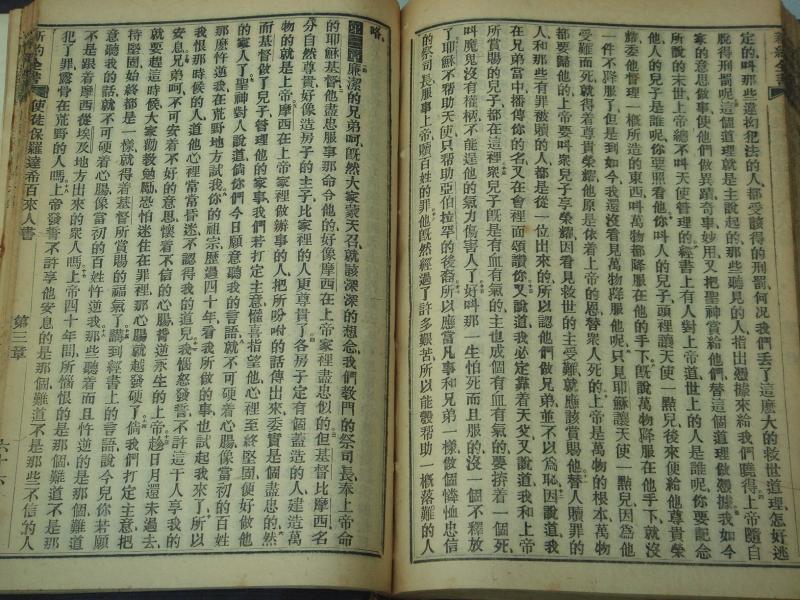 新約全書
定的叫那些違拗犯法的人都受該得的刑罰何況我們丟了這麼大的救世道理怎好逃
脫得刑罰呢這個道理就是主說起的那些聽見的人指出憑據來給我們曉得上帝隨自
家的意思做事使他們做異蹟奇事妙用又把聖神賞給他們替這個道理做憑據我如今
所說的末世上帝總不叫天使管理的經書上有人對上帝道世上的人是誰呢你要記念
他人的兒子是誰呢你要照看他你叫人的兒子頭裡讓天使一點兒後來便給他尊貴榮
耀委他督理一概所造的東西叫萬物都降服在他的手下旣說萬物降服在他手下就沒
一件不降服了但是到如今我還沒看見萬物降服他呢只見耶穌讓天使一點兒因爲他
受難而死就得着尊貴榮耀他原是依着上帝的恩替衆人死的上帝是萬物的根本萬物
都要歸他的上帝要叫衆兒子享榮耀因看見救世的主受難就應該賞賜他替人贖罪的
人和那些有罪被贖的人都是從一位出來的所以認他們做兄弟並不以爲恥因說道我
在兄弟當中播傳你的名又在會裡面頌讚你又說道我必定靠着天父又說道我和上帝
所賞賜的兒子都在這裡衆兒子旣是有血有氣的主也成個有血有氣的要拚着一個死
叫魔鬼沒有權柄不能逞他的氣力傷害人了好叫那一生怕死而且服的沒一個不釋放
了耶穌不幫助天使只幫助亞伯拉罕的後裔所以應當凡事和兄弟一樣做個憐恤忠信
的祭司長服事上帝贖百姓的罪他旣然經過了許多艱苦所以能彀幫助一概落難的人
咯
第三章廉潔的兄弟呵旣然大家蒙天召就該深深的想念我們敎門的祭司長奉上帝命
的耶穌基督他盡忠服事那命令他的好像摩西在上帝家裡盡忠似的但基督比摩西名
分自然尊貴好像造房子的主子比家裡的人更尊貴了各房子定有個蓋造的人建造萬
物的就是上帝摩西在上帝家裡做辦事的人把所吩咐的話傳出來委實是個盡忠的然
而基督做了兒子管理他的家事我們若打定主意懽喜指望他心裡至終堅固便好做他
的家人了聖神對人說道倘你們今日願意聽我的言語就不可硬着心腸像當初的百姓
那麼忤逆我在荒野地方試我你的祖宗歷過四十年看我所做的事也試起我來了所以
我恨那時候的人道他心裡常常昏迷不認得我的道兒我惱怒發誓不許這干人享我的
安息兄弟呵不可安着不好的意思懷着不信的心腸背逆永生的上帝趁日月還未過去
就要趕這時候大家勸敎勉勵恐怕迷住在罪裡那心腸就越發硬了倘我們打定主意把
持堅固始終都是一樣就得着基督所賞賜的福氣了講到經書上的言語說今兒你若願
意聽我的話就不可硬着心腸像當初的百姓忤逆我那些聽着而且忤逆的是那個難道
不是跟着摩西從埃及地方出來的衆人嗎上帝四十年間所惱恨的是那個難道不是那
犯了罪露骨在荒野的人嗎上帝發誓不許享他安息的是那個難道不是那些不信的人
新約全書 使徒保羅達希百來人書 第三章 六十六